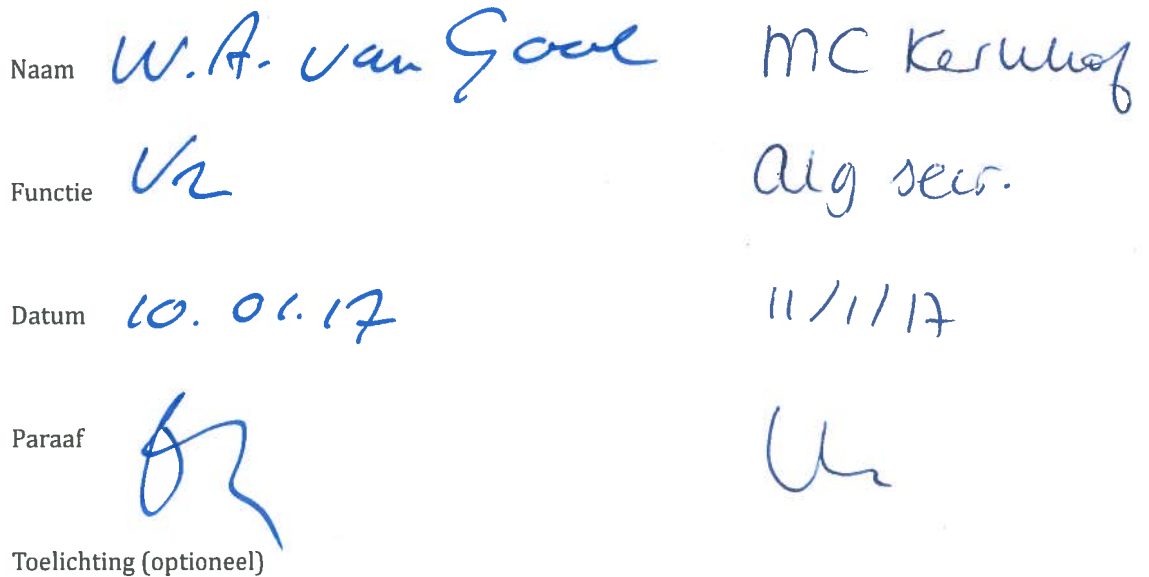 Naam W.A. van Gool MC Kerkhof
Functie Vz Alg secr.
Datum 10.01.17 11/1/17
Paraaf
Toelichting (optioneel)